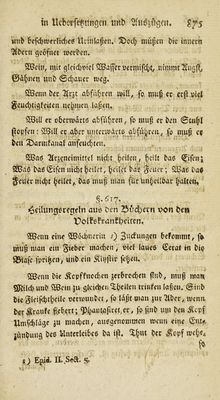 in Uebersetzungen und Auszügen. 875
und beschwerliches Urinlaßen. Doch müßen die innern
Adern geöfnet werden.
Wein, mit gleichviel Wasser vermischt, nimmt Angst,
Gähnen und Schauer weg.
Wenn der Arzt abführen will, so muß er erst viel
Feuchtigkeiten nehmen laßen.
Will er oberwärts abführen, so muß er den Stuhl
stopfen: Will er aber unterwärts abführen, so muß er
den Darmkanal anfeuchten.
Was Arzeneimittel nicht heilen, heilt das Eisen;
Was das Eisen nicht heilet, heilet das Feuer; Was das
Feuer nicht heilet, das muß man für unheilbar halten.
§. 617.
Heilungsregeln aus den Büchern von den
Volkskrankheiten.
Wenn eine Wöchnerin 1) Zuckungen bekommt, so
muß man ein Fieber machen, viel laues Cerat in die
Blase spritzen, und ein Klystir setzen.
Wenn die Kopfknochen zerbrochen sind, muß man
Milch und Wein zu gleichen Theilen trinken laßen. Sind
die Fleischtheile verwundet, so läßt man zur Ader, wenn
der Kranke fiebert; Phantasirt er, so sind um den Kopf
Umschläge zu machen, ausgenommen wenn eine Ent-
zündung des Unterleibes da ist. Thut der Kopf wehe,
so
1) Epid. II. Sekt. 5.